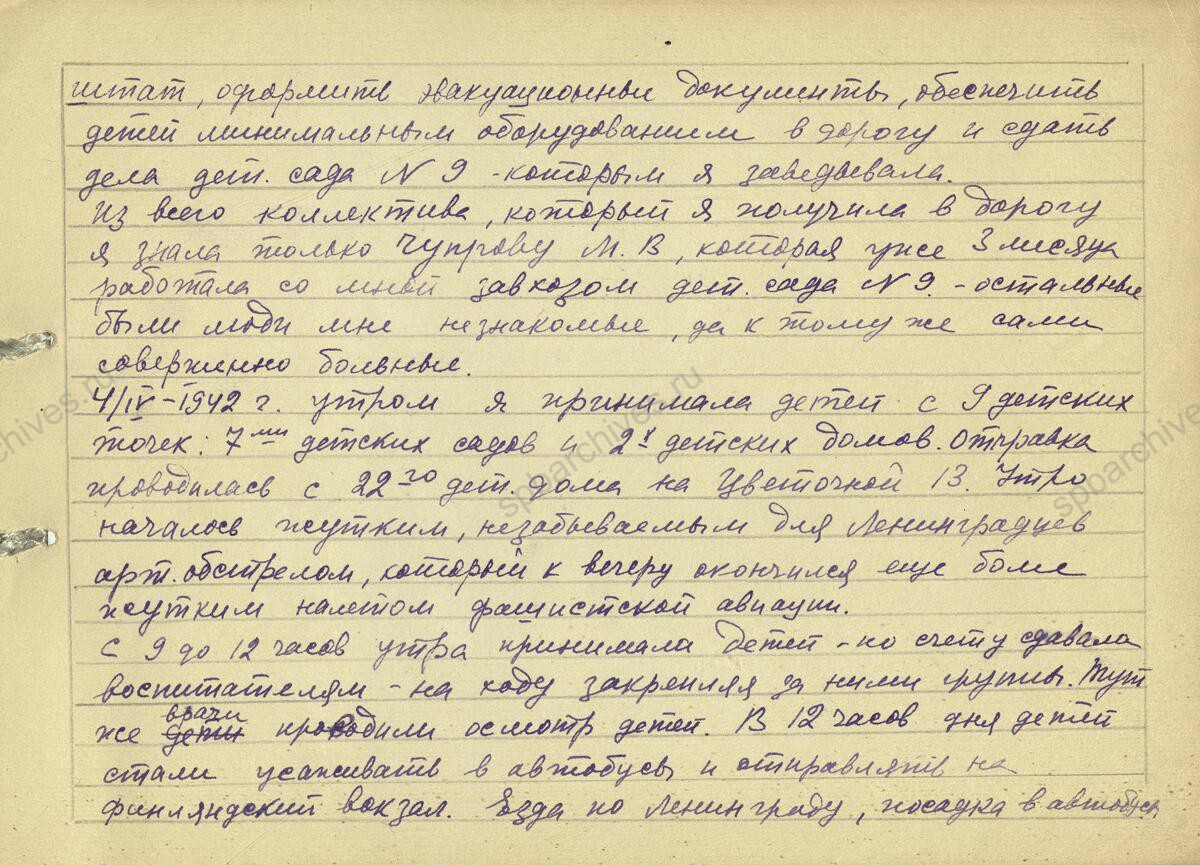 штат, оформить эвакуационные документы, обеспечить
детей минимальным оборудованием в дорогу и сдать
дела дет. сада N 9 - которым я заведывала.
Из всего коллектива, который я получила в дорогу
я знала только Чупрову М. В, которая уже 3 месяца
работала со мной завхозом дет. сада N 9. - остальные
были люди мне незнакомые, да к тому же сами
совершенно больные.
4/IV-1942 г. утром я принимала детей с 9 детских
точек: 7ми детских садов и 2х детских домов. Отправка
проводилась с 22го дет. дома на Цветочной 13. Утро
началось жутким, незабываемым для Ленинградцев
арт. обстрелом, который к вечеру окончился еще более
жутким налетом фашистской авиации.
С 9 до 12 часов утра принимала детей - по счету сдавала
воспитателям - на ходу закрепляя за ними группы. Тут
же врачи проводили осмотр детей. В 12 часов дня детей
стали усаживать в автобусы и отправлять на
финляндский вокзал. Езда по Ленинграду, посадка в автобусы
spbarchives.ru
spbarchives.ru
spbarchives